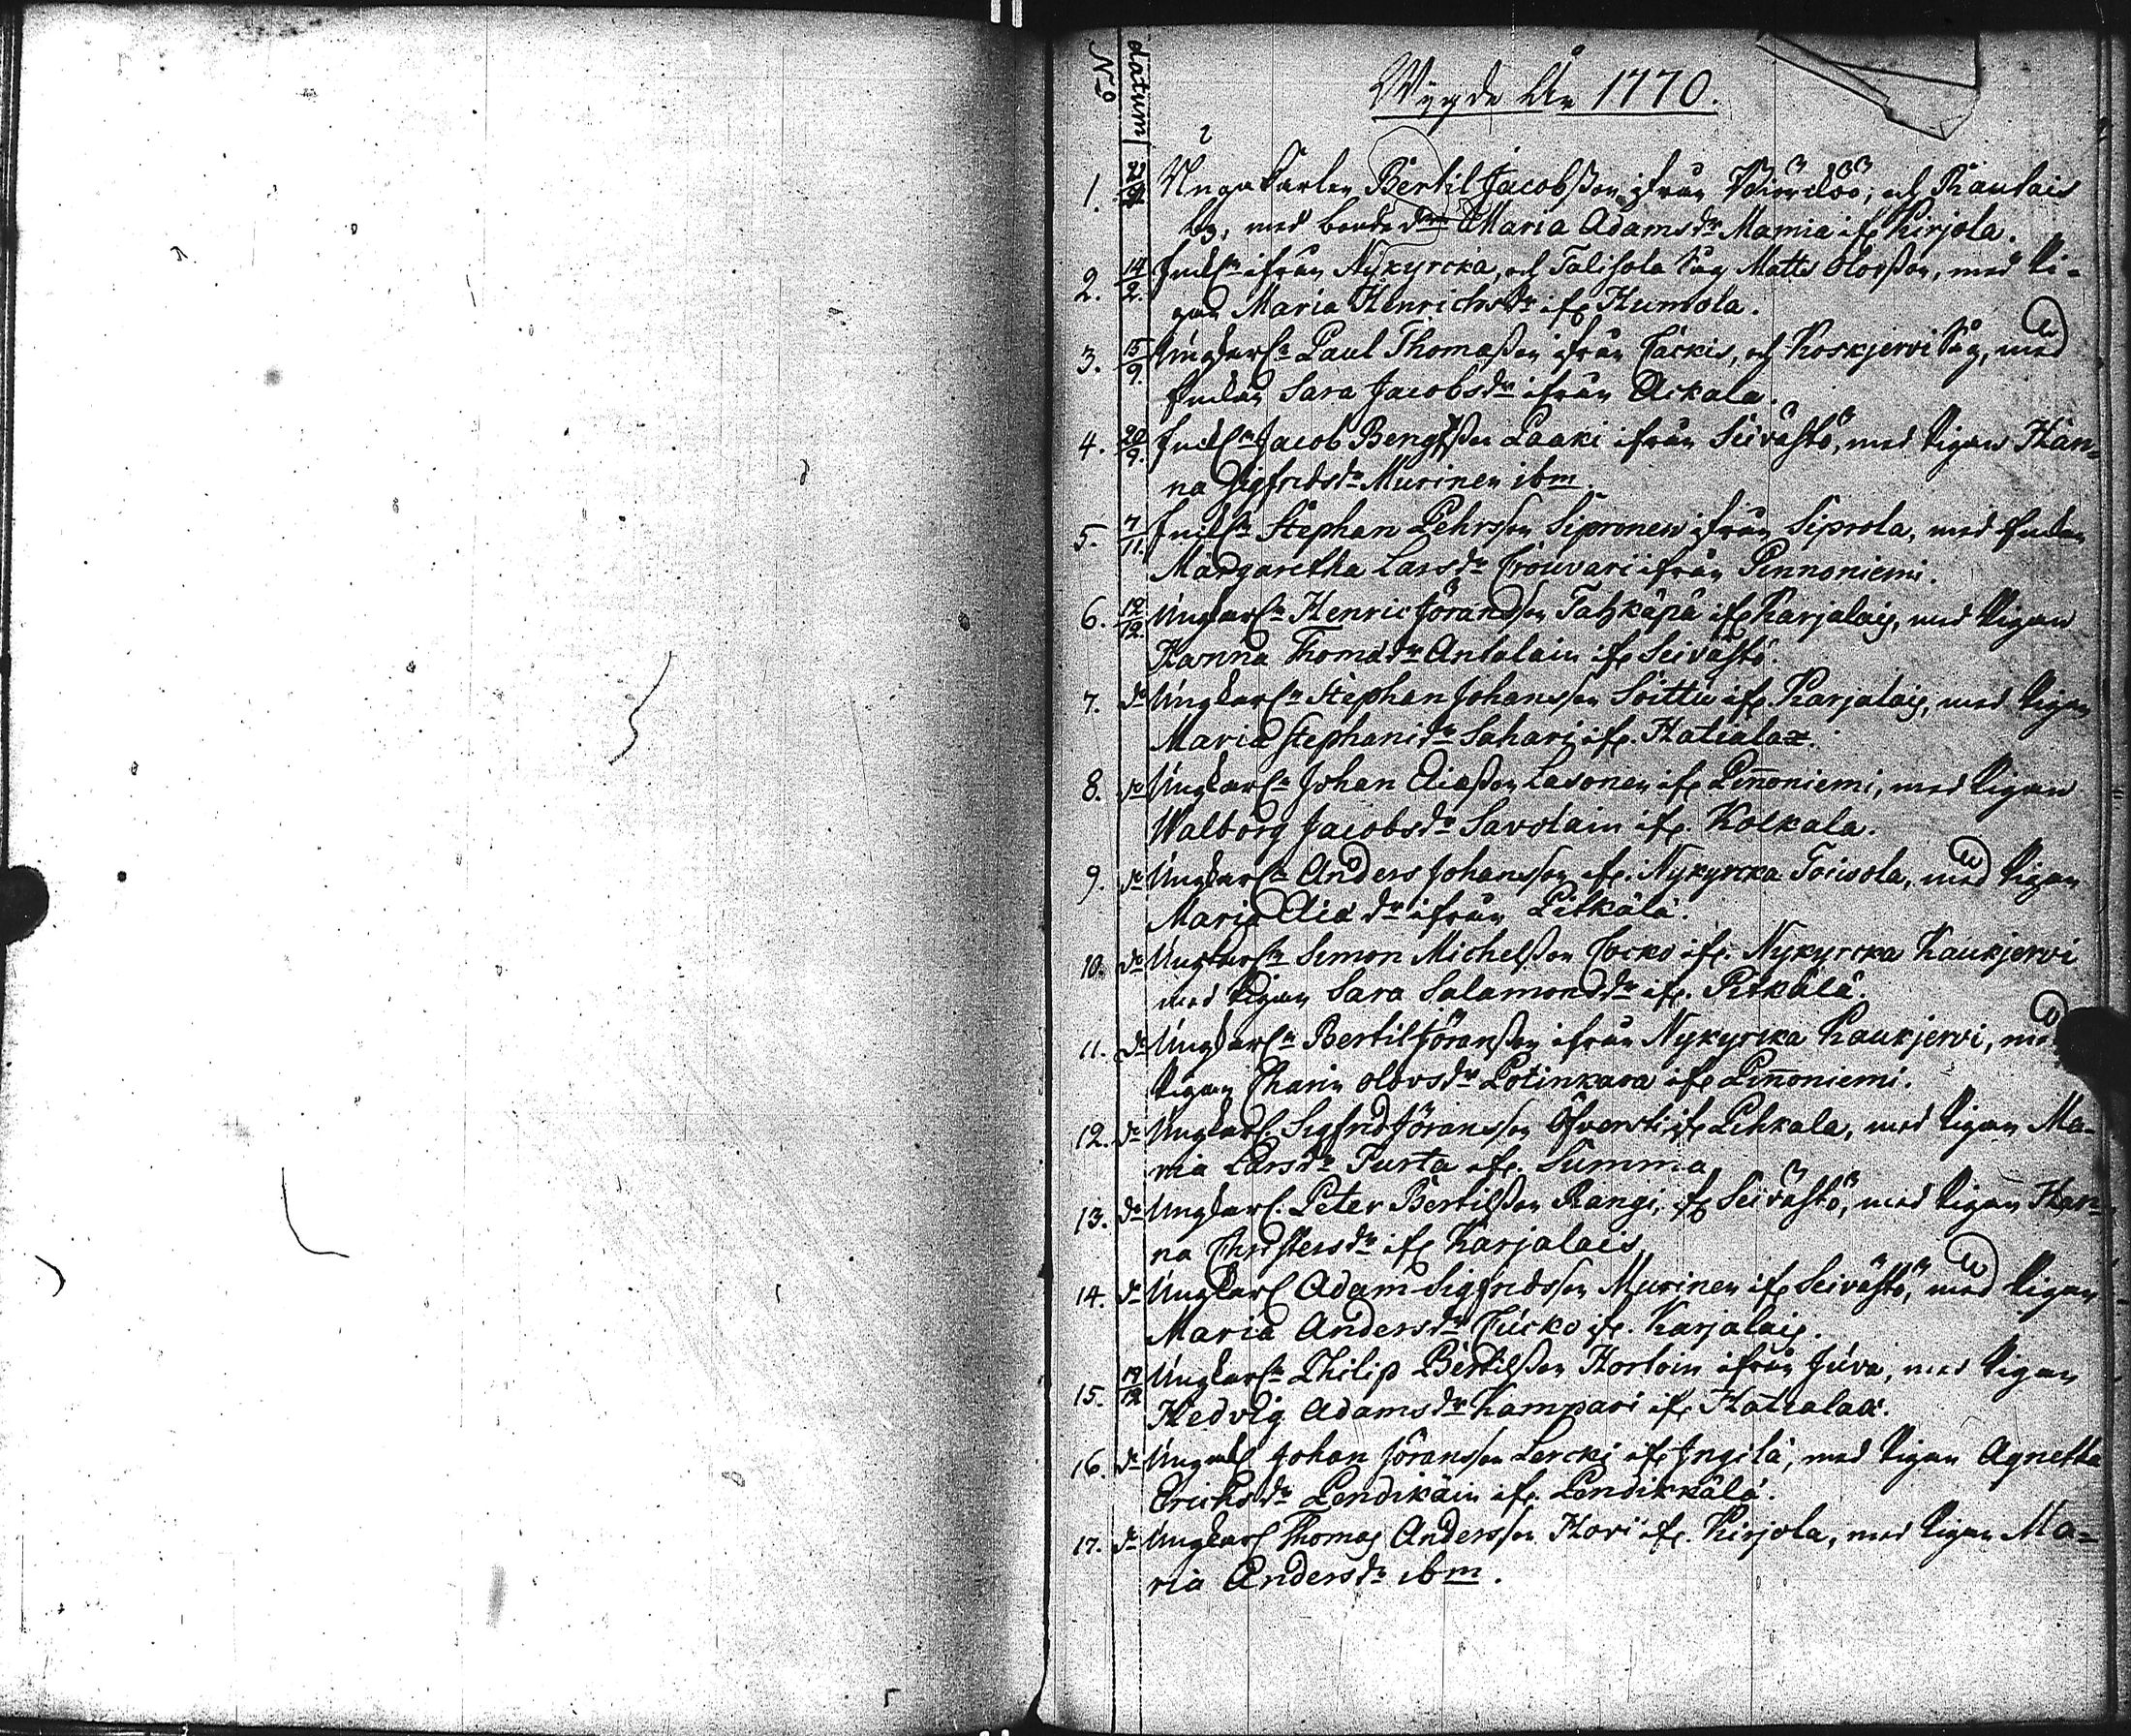 Wigde År 1770.
N:o datum
1. Unga Karlen Bertil Jacobsson ifrån och Rautais
by, med Maria Adams dr Mamia ifr Kirjola.
2. 14/2. Enkl:n ifrån Nykyrcka, och Talisola by Matts Olovsson, med Pi-
gan Maria Henrichs dr ifr Humola.
3. 15/9. Ungkarl:n Paul Thomasson ifrån och Koskjervi by, med
Enkan Sara Jacobs dr ifrån Ackala.
4. 20/9. Enkl:n Jacob Bengtsson Laaki ifrån Seivästö, med Pigan Han-
na Sigfrids dr Murinen ibm.
5. 7/11. Enkl:n Stephan Pehrsson Sipronen ifrån Siprola, med Enkan
Margaretha Lars dr ifrån Pennoniemi.
6. 12/12. Ungkarl:n Henric Jöransson Tahkäpä ifr Karjalais, med Pigan
Hanna Thoma dr Antalain ifr Seivästö.
7. do Ungkarl:n Stephan Johansson Soittu ifr. Karjalais, med Pigan
Maria Stephani dr Sahari ifr. Hatialax.
8. do Ungkarl:n Johan Eiasson Lavonen ifr Pen̄oniemi, med Pigan
Walborg Jacobs dr Savolain ifr. Kolkala.
9. do Ungkarl:n Anders Johansson ifr. Nykyrcka Toivola, med Pigan
Maria dr ifrån Pitkälä.
10. do Ungkarl:n Simon Michelsson Cocko ifr. Nykyrcka Kaukjervi
med Pigan Sara Salamons dr ifr. Pitkälä.
11. do Ungkarl:n Bertil Jöransson ifrån Nykyrcka Kaukjervi, med
Pigan Charin Olovs dr Potinkara ifr Pen̄oniemi.
12. do Ungkarl. Sigfrid Jöransson Öfversti ifr Pihkala, med Pigan Ma-
ria Lars dr Turta ifr. Summa.
13. do Ungkarl. Peter Bertilsson Rangi, ifr Seivästö, med Pigan Han-
na Christers dr ifr Karjalais.
14. do Ungkarl Adam Sigfridsson Murinen ifr Seivästö, med Pigan
Maria Anders dr Cucko ifr. Karjalais.
15. 19/12 Ungkarl:n Philip Bertilsson Horloin ifrån Juva, med Pigan
Hedvig Adams dr Kampari ifr Hatialax.
16. do Ungkarl Johan Jöransson Lercki ifr Ingilä, med Pigan Agnetha
Erichs dr Pendikäin ifr Pendikkälä.
17. do Ungkarl Thomas Andersson Hovi ifr. Kirjola, med Pigan Ma-
ria Anders dr ibm.